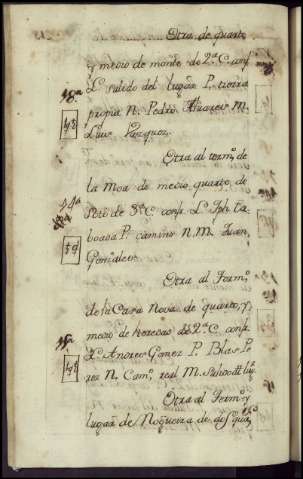 Otra de quarto
y medio de monte de 2ª C. conf.
L. salido del lugar P. tierra
propia N. Pedro Alvarez M.
Luis Vazquez
Otra al term.º de
la Moa de medio quarto de
Soto de 3ª C. conf. L. Jph Ta
boada P. camino N. M. Juan
Gonzalez
Otra al Term.º
de la Casa Nova de quarto, y
medio de heredad de 2ª C. conf.
L. Andres Gomez P. Blas Pe
rez N. Cam.º real M.
Otra al Term.º y
lugar de Nogueira de